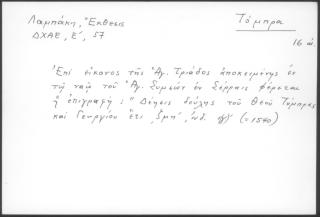 Λαμπάκη, Ἔκθεσις
ΔΧΑΕ, Ε', 57
Τόμπρα
16 αἰ.
Ἐπί εἰκόνος τῆς Ἁγ. Τριάδος ἀποκειμένης ἐν
τῷ ναῷ τοῦ Ἁγ. Συμεών ἐν Σέρραις φέρεται
ἡ ἐπιγραφή: "Δέησις δούλης τοῦ Θεοῦ Τόμπρας
καί Γεωργίου ἔτι ͵ζμη', ἰνδ. ιγ') (=1540)